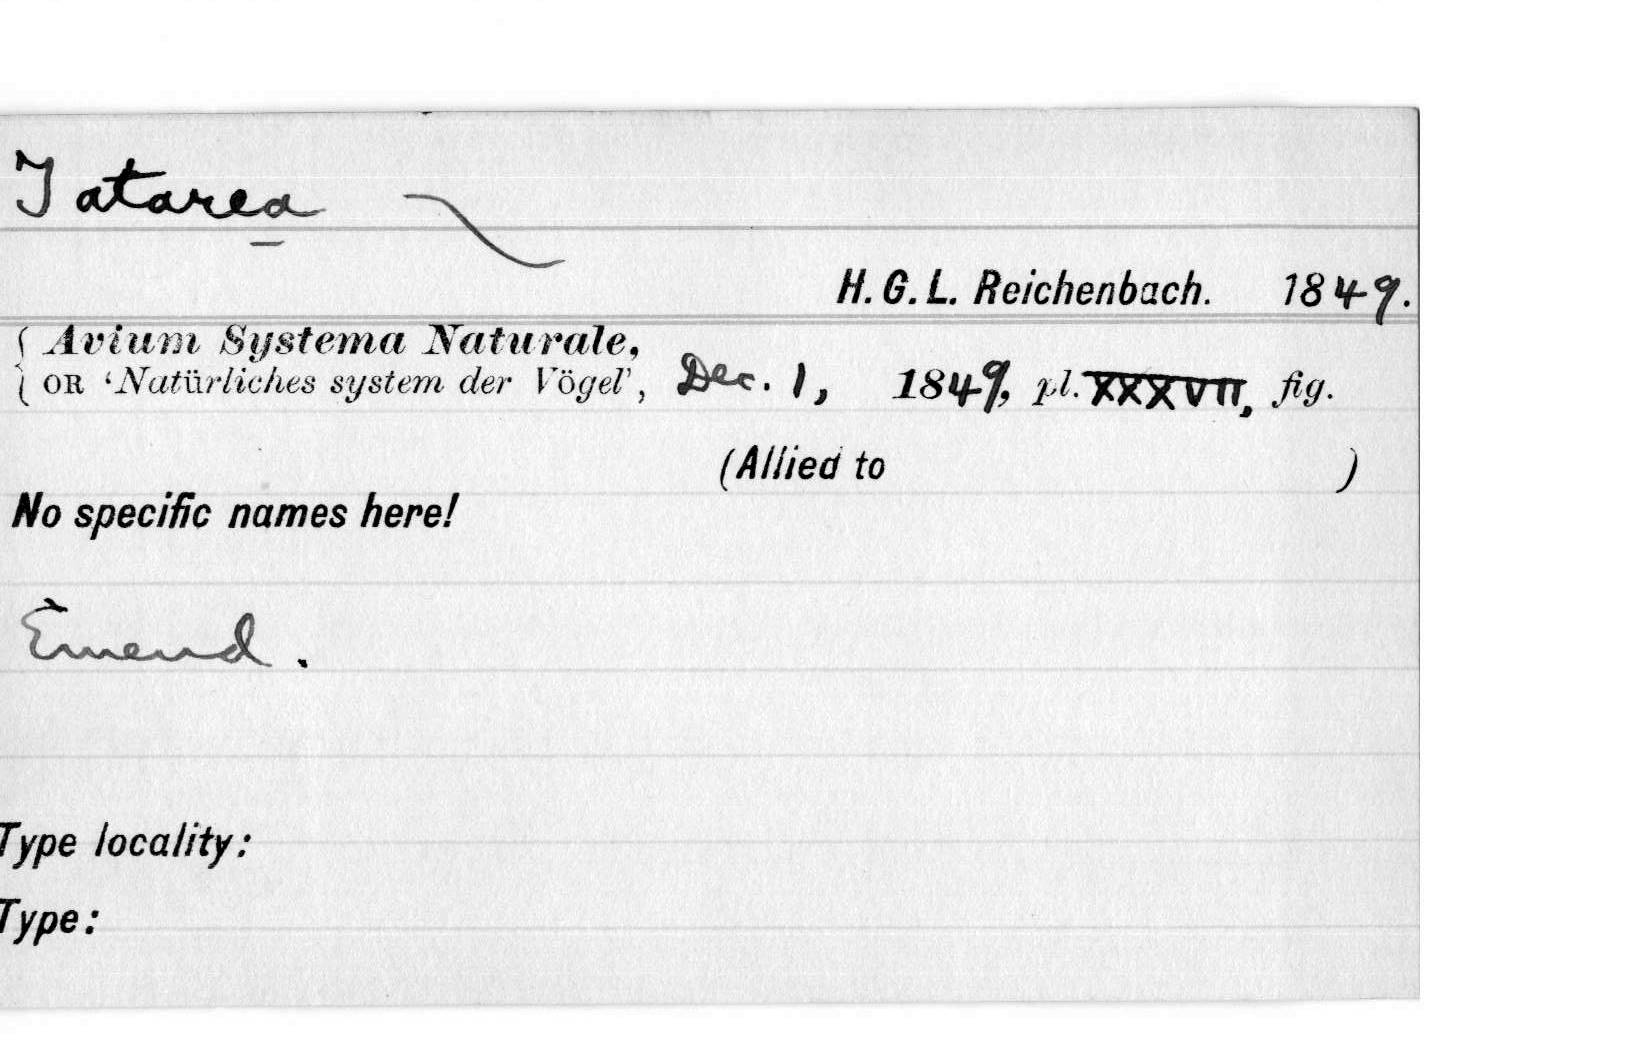 Tatarea
H. G. L. Reichenbach. 1849.
Avium Systema Naturale,
OR ‘Natürliches system der Vögel’, Dec. 1, 1849, pl. XXXVII, fig.
(Allied to )
No specific names here!
Emend.
Type locality:
Type: